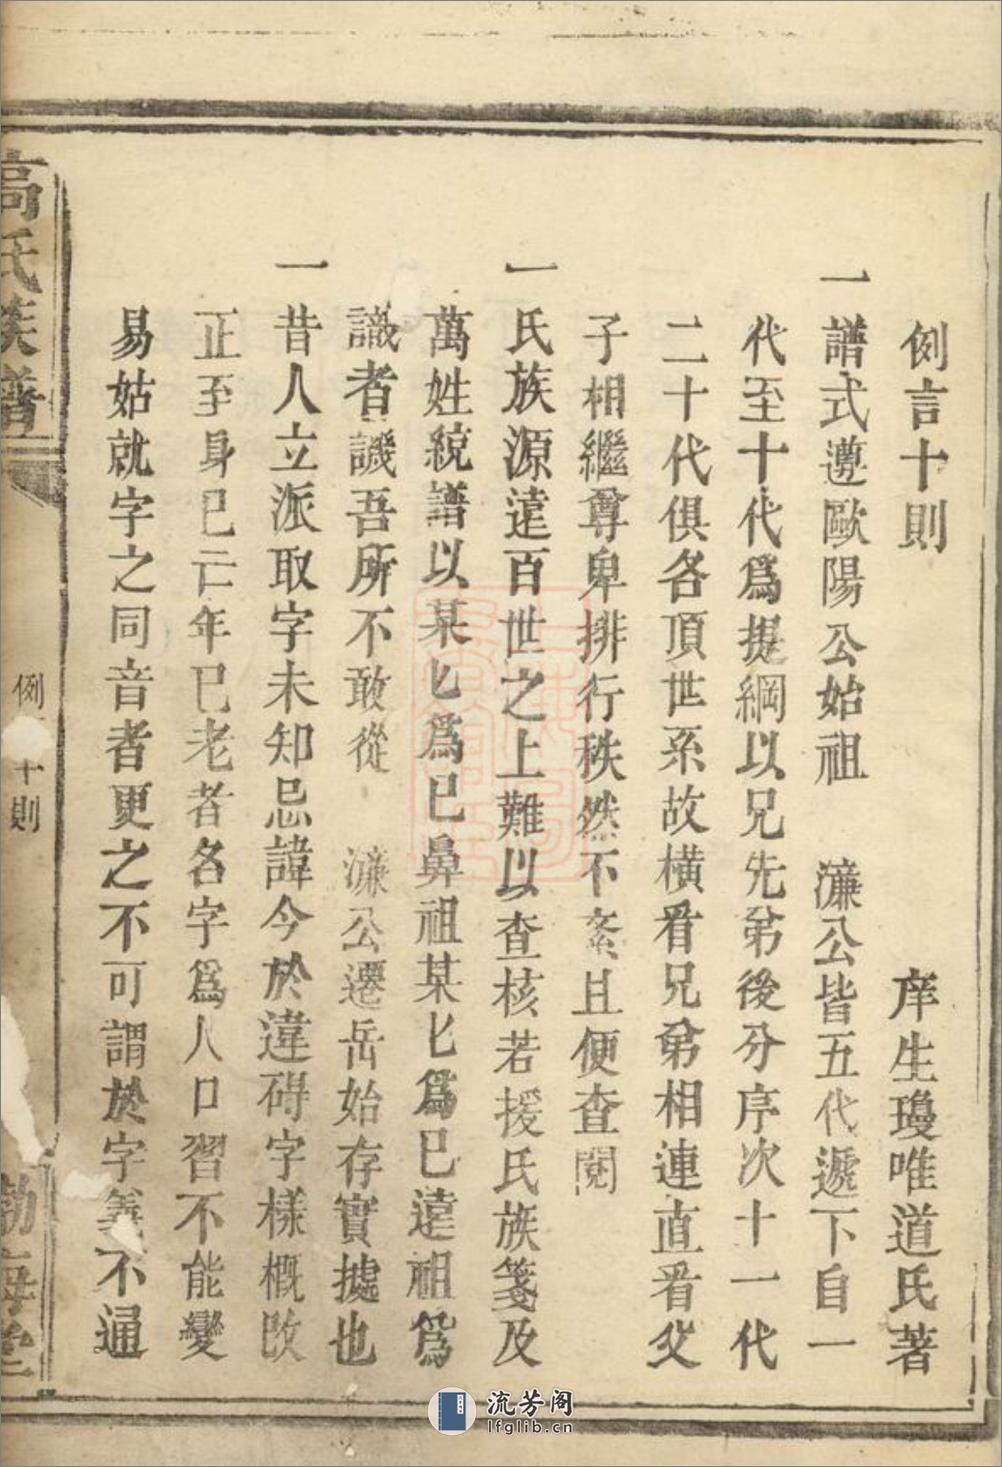 例言十則
庠生瓊唯道氏著
一譜式遵歐陽公始祖　濂公皆五代遞下自一
代至十代爲提綱以兄先弟後分序次十一代
二十代俱各頂世系故橫看兄弟相連直看父
子相繼尊卑排行秩然不紊且便查閱
一氏族源遠百世之上難以查核若援氏族箋及
萬姓統譜以某匕爲已鼻祖某匕爲已遠祖爲
識者譏吾所不敢從　濂公遷岳始存實據也
一昔人立派取字未知忌諱今於違碍字樣概改
正至身已亡年已老者名字爲人口習不能變
易姑就字之同音者更之不可謂於字義不通
高氏族譜
例　十則
勃海堂
流芳阁
lfglib.cn